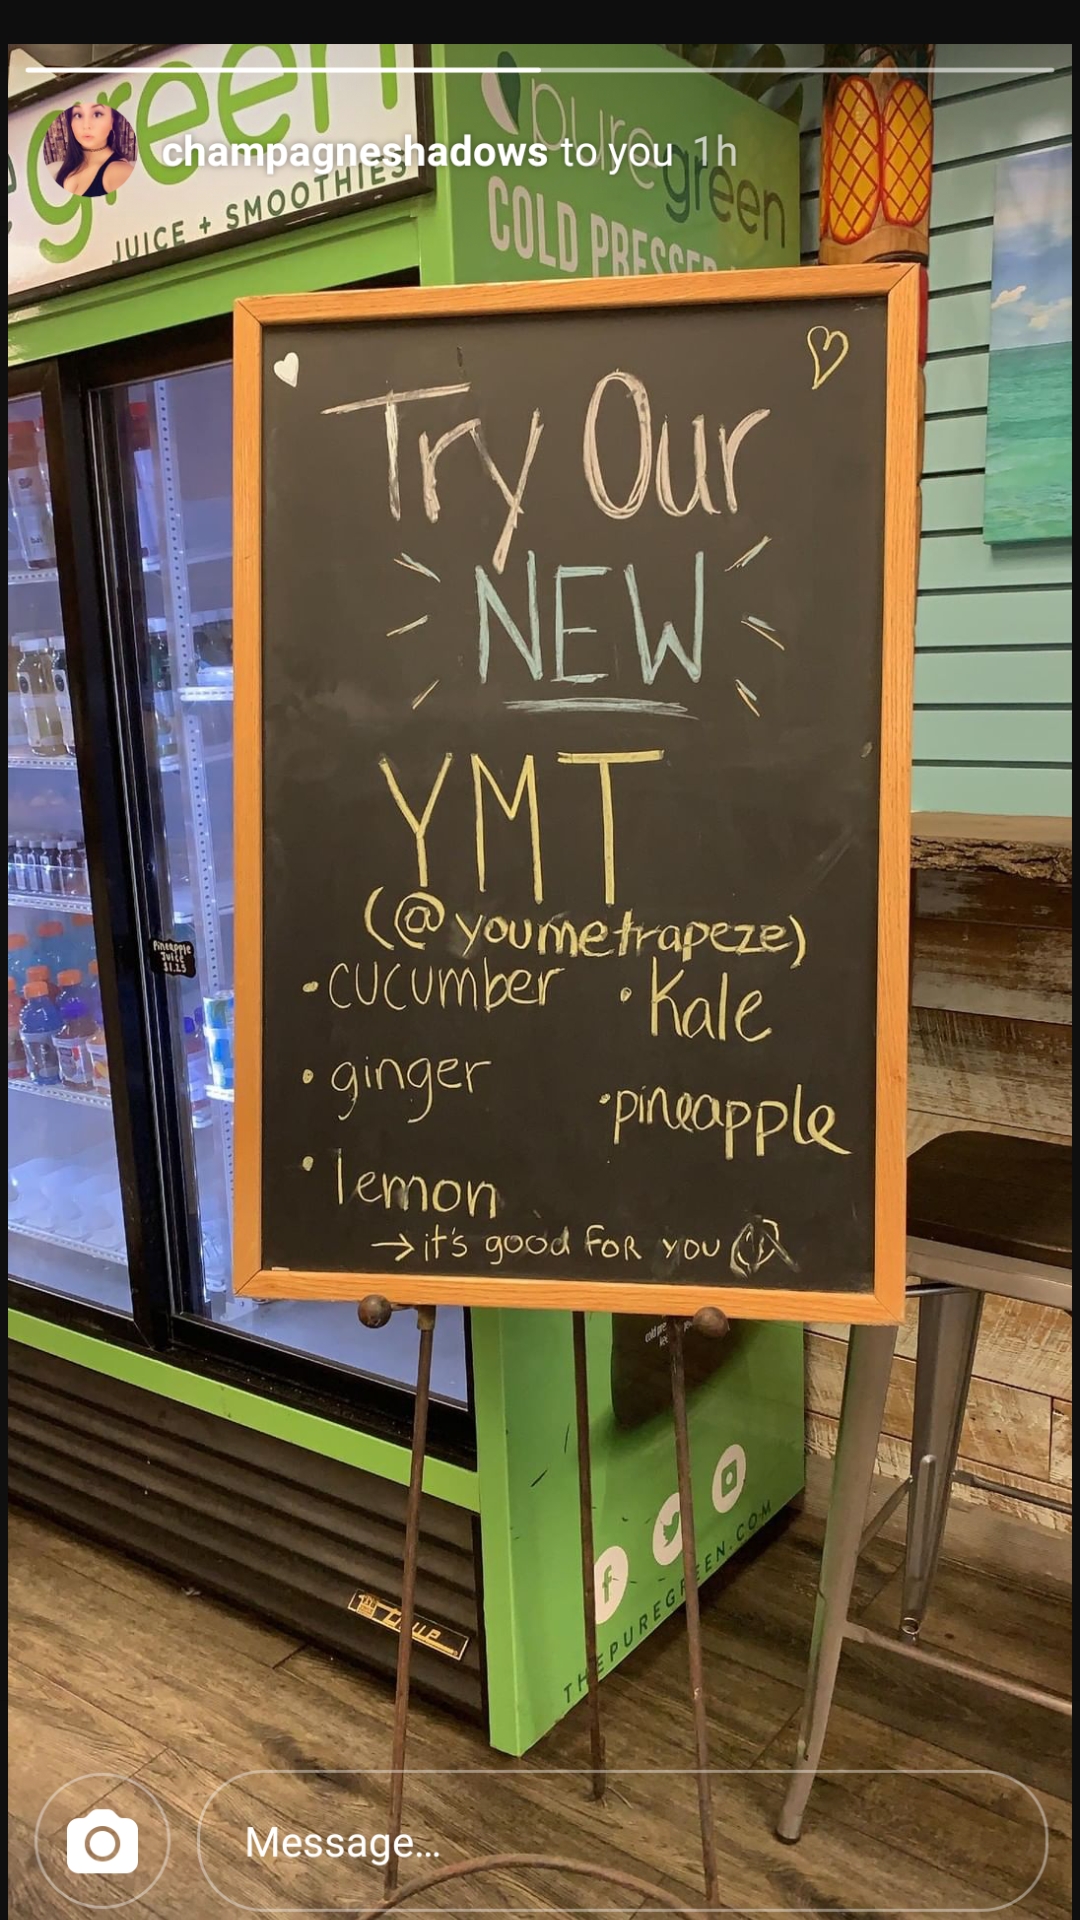 champagneshadows to you 1h
green
JUICE + SMOOTHIES
puregreen
COLD PRESSED
Try Our
NEW
YMT
(@youmetrapeze)
• cucumber
• Kale
• ginger
• pineapple
• lemon
→ it's good FOR YOU
Pineapple
Juice
$1.25
THEPUREGREEN.COM
Message...